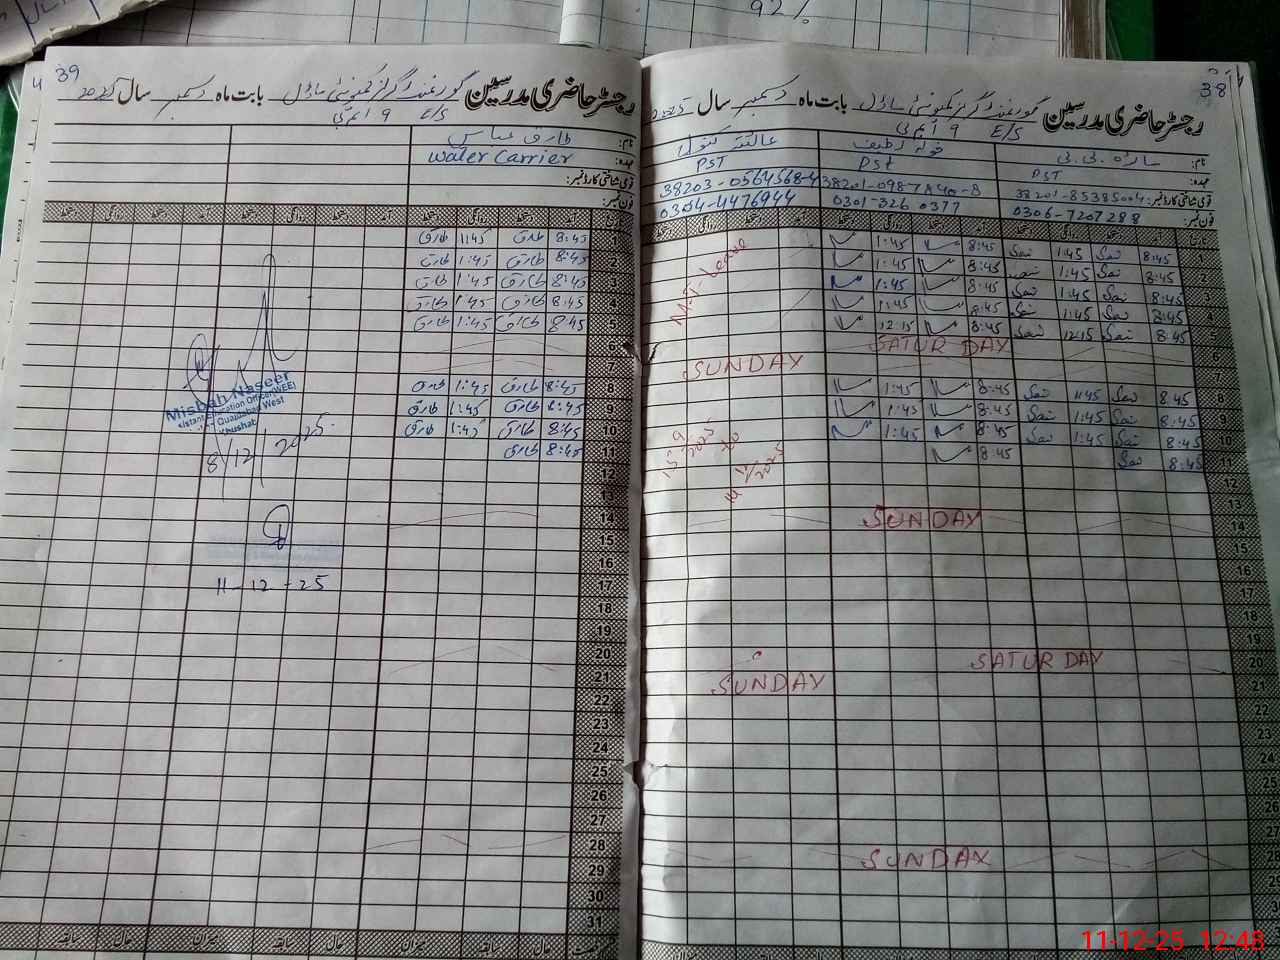 92%
38
رجسٹر حاضری مدرسین گورنمنٹ گرلز کمیونٹی ماڈل بابت ماہ دسمبر سال 2025
E/S 9 ایم بی
نام: سارہ بی بی
عہدہ: PST
قومی شناختی کارڈ نمبر:
فون نمبر: 0306-7207288
خولہ لطیف
Pst
38201-0987840-8
0301-326 0377
PST
38203-0564568-4
0304-4476944
تاریخ آمد دستخط روانگی دستخط آمد دستخط روانگی دستخط
1 8:45 1:45 8:45 1:45
2 8:45 1:45 8:45 1:45
3 8:45 1:45 8:45 1:45
4 8:45 1:45 8:45 1:45
5 8:45 12:15 8:45 12:15
6 SATURDAY
7 SUNDAY
8 8:45 1:45 8:45 1:45
9 8:45 1:45 8:45 1:45
10 8:45 1:45 8:45 1:45
11 8:45 8:45
12
13
14 SUNDAY
15
16
17
18
19
20 SATURDAY
21 SUNDAY
22
23
24
25
26
27
28 SUNDAY
29
Leave
to
39
رجسٹر حاضری مدرسین گورنمنٹ گرلز کمیونٹی ماڈل بابت ماہ دسمبر سال 2025
E/S 9 ایم بی
نام: طارق عباس
عہدہ: Water Carrier
قومی شناختی کارڈ نمبر:
فون نمبر:
تاریخ آمد دستخط روانگی دستخط آمد دستخط روانگی دستخط آمد دستخط روانگی دستخط
1 8:45 طارق 1:45 طارق
2 8:45 طارق 1:45 طارق
3 8:45 طارق 1:45 طارق
4 8:45 طارق 1:45 طارق
5 8:45 طارق 1:45 طارق
6
7
8 8:45 طارق 1:45 طارق
9 8:45 طارق 1:45 طارق
10 8:45 طارق 1:45 طارق
11 8:45 طارق
12
13
14
15
16
17
18
19
20
21
22
23
24
25
26
27
28
29
30
31
حال سابقہ میزان حال سابقہ میزان حال سابقہ
Misbah Naseer
Assistant Education Officer(WEE)
Quaidabad West
Khushab
8/12/2025
11-12-25
11-12-25 12:48